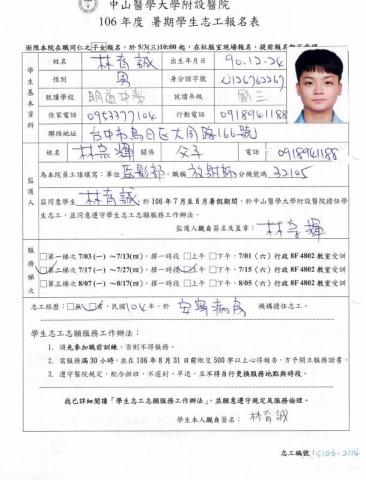 中山醫學大學附設醫院
106 年度 暑期學生志工報名表
※限本院在職同仁之子女報名，於 5/3(三)10:00 起，在社服室現場報名，提前報名
學生基本資料
姓名 林育誠 出生年月日 90.12.24
性別 男 身分證字號
就讀學校 明道中學 就讀年級 國三
住家電話 行動電話 0918941188
聯絡地址 台中市烏日區大同路166號
監護人
姓名 林宗輝 關係 父子 電話 0918941188
為本院員工請填寫：單位 醫影部，職稱 放射師 分機號碼 32105
茲同意學生 林育誠 於 106 年 7 月至 8 月暑假期間，於中山醫學大學附設醫院擔任學
生志工，並同意遵守學生志工志願服務工作辦法。
監護人親自簽名及蓋章：林宗輝
服務梯次
□第一梯次 7/03(一)～7/13(四)，擇一時段 □上午 □下午，7/01 (六) 行政 8F 4802 教室受訓
□第二梯次 7/17(一)～7/27(四)，擇一時段 □上午 □下午，7/15 (六) 行政 8F 4802 教室受訓
□第三梯次 8/07(一)～8/17(四)，擇一時段 □上午 □下午，8/05 (六) 行政 8F 4802 教室受訓
志工經歷：□無 □有，民國 104 年，於 安寧病房 機構擔任志工。
學生志工志願服務工作辦法：
1. 須先參加職前訓練，否則不得服務。
2. 需服務滿 30 小時，並在 106 年 8 月 31 日前繳交 500 字以上心得報告，方予開立服務證書。
3. 遵守醫院規定，配合排班，不遲到、早退，且不得自行更換服務地點與時段。
我已詳細閱讀「學生志工志願服務工作辦法」，並願意遵守規定及服務倫理。
學生本人親自簽名：林育誠
志工編號：S106-2114